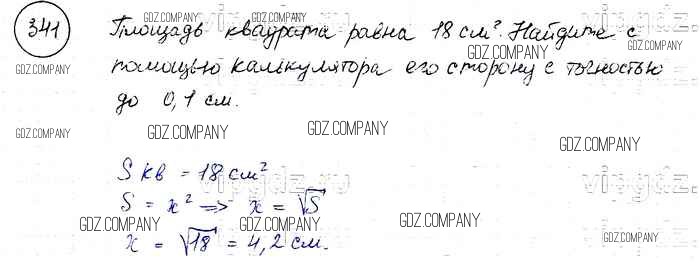 341 Площадь квадрата равна 18 см². Найдите с
помощью калькулятора его сторону с точностью
до 0,1 см.
S кв = 18 см²
S = x² => x = √S
x = √18 = 4,2 см.
GDZ.COMPANY
GDZ.COMPANY
GDZ.COMPANY
GDZ.COMPANY
GDZ.COMPANY
GDZ.COMPANY
GDZ.COMPANY
GDZ.COMPANY
GDZ.COMPANY
GDZ.COMPANY
GDZ.COMPANY
GDZ.COMPANY